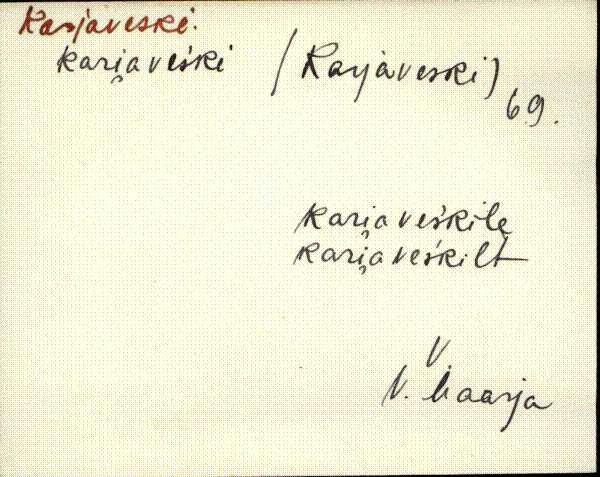 Karjaveski.
kari̯aveśki (Karjaveski) 69.
kari̯aveśkile
kari̯aveśkilt
V. Maarja